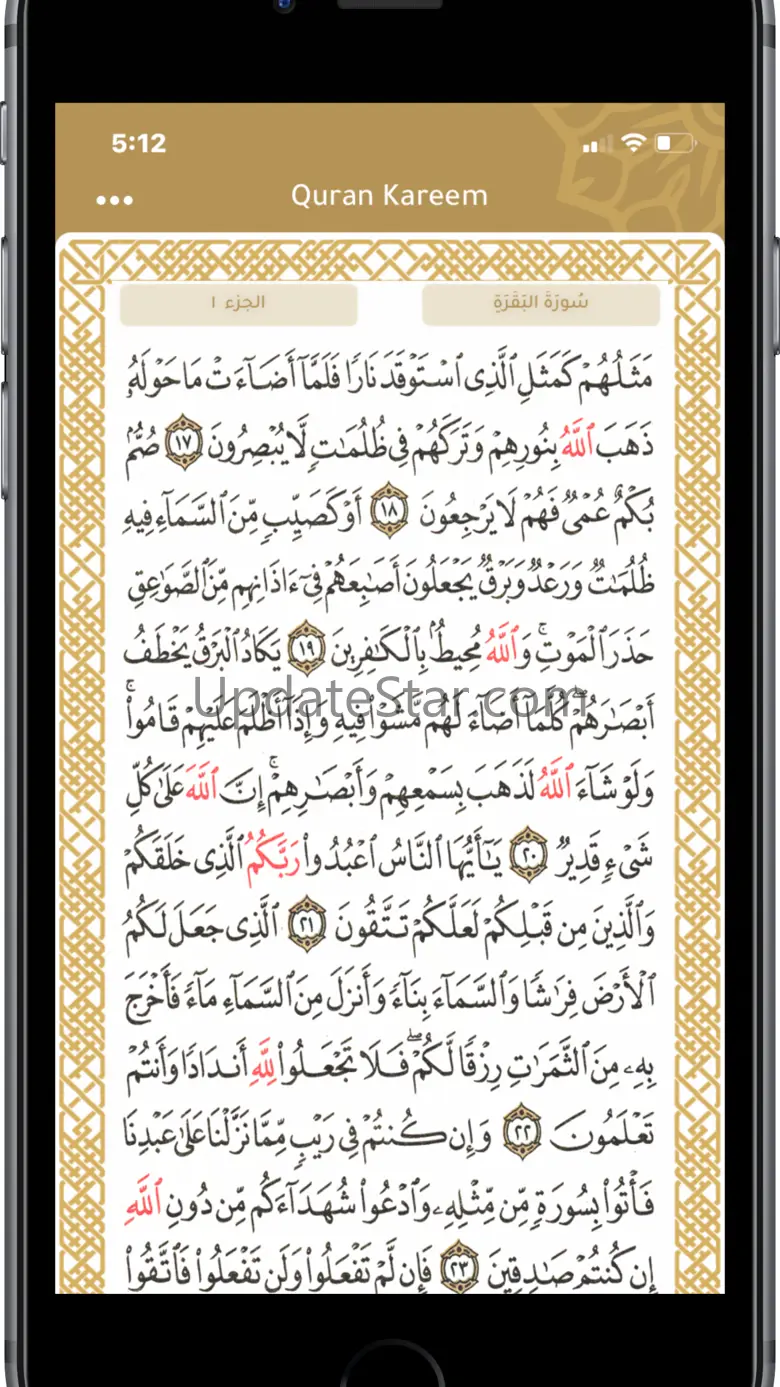 5:12
Quran Kareem
سُورَةُ البَقَرَةِ
الجزء ١
مَثَلُهُمْ كَمَثَلِ ٱلَّذِى ٱسْتَوْقَدَ نَارًا فَلَمَّآ أَضَآءَتْ مَا حَوْلَهُۥ
ذَهَبَ ٱللَّهُ بِنُورِهِمْ وَتَرَكَهُمْ فِى ظُلُمَـٰتٍ لَّا يُبْصِرُونَ ١٧ صُمٌّۢ
بُكْمٌ عُمْىٌ فَهُمْ لَا يَرْجِعُونَ ١٨ أَوْ كَصَيِّبٍ مِّنَ ٱلسَّمَآءِ فِيهِ
ظُلُمَـٰتٌ وَرَعْدٌ وَبَرْقٌ يَجْعَلُونَ أَصَـٰبِعَهُمْ فِىٓ ءَاذَانِهِم مِّنَ ٱلصَّوَٰعِقِ
حَذَرَ ٱلْمَوْتِ ۚ وَٱللَّهُ مُحِيطٌۢ بِٱلْكَـٰفِرِينَ ١٩ يَكَادُ ٱلْبَرْقُ يَخْطَفُ
أَبْصَـٰرَهُمْ ۖ كُلَّمَآ أَضَآءَ لَهُم مَّشَوْا۟ فِيهِ وَإِذَآ أَظْلَمَ عَلَيْهِمْ قَامُوا۟ ۚ
UpdateStar.com
وَلَوْ شَآءَ ٱللَّهُ لَذَهَبَ بِسَمْعِهِمْ وَأَبْصَـٰرِهِمْ ۚ إِنَّ ٱللَّهَ عَلَىٰ كُلِّ
شَىْءٍ قَدِيرٌ ٢٠ يَـٰٓأَيُّهَا ٱلنَّاسُ ٱعْبُدُوا۟ رَبَّكُمُ ٱلَّذِى خَلَقَكُمْ
وَٱلَّذِينَ مِن قَبْلِكُمْ لَعَلَّكُمْ تَتَّقُونَ ٢١ ٱلَّذِى جَعَلَ لَكُمُ
ٱلْأَرْضَ فِرَٰشًا وَٱلسَّمَآءَ بِنَآءً وَأَنزَلَ مِنَ ٱلسَّمَآءِ مَآءً فَأَخْرَجَ
بِهِۦ مِنَ ٱلثَّمَرَٰتِ رِزْقًا لَّكُمْ ۖ فَلَا تَجْعَلُوا۟ لِلَّهِ أَندَادًا وَأَنتُمْ
تَعْلَمُونَ ٢٢ وَإِن كُنتُمْ فِى رَيْبٍ مِّمَّا نَزَّلْنَا عَلَىٰ عَبْدِنَا
فَأْتُوا۟ بِسُورَةٍ مِّن مِّثْلِهِۦ وَٱدْعُوا۟ شُهَدَآءَكُم مِّن دُونِ ٱللَّهِ
إِن كُنتُمْ صَـٰدِقِينَ ٢٣ فَإِن لَّمْ تَفْعَلُوا۟ وَلَن تَفْعَلُوا۟ فَٱتَّقُوا۟